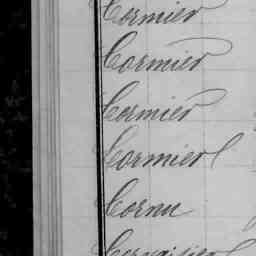 Cormier
Cormier
Cormier
Cormier
Cornu